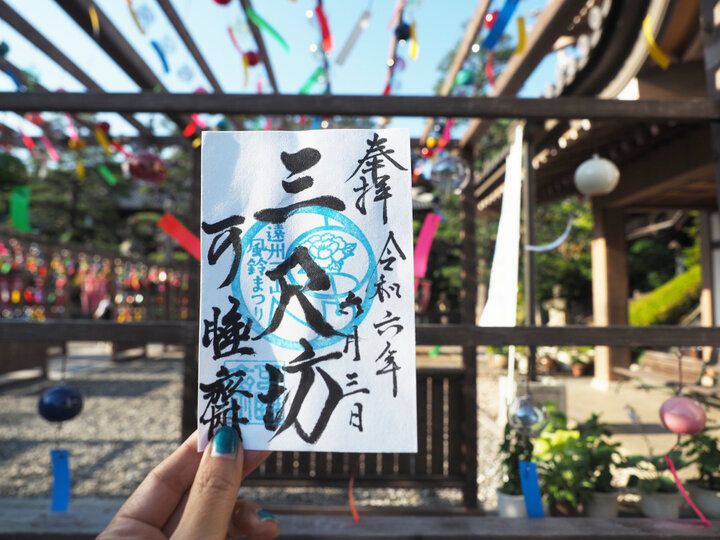 奉拝
令和六年
六月三日
三尺坊
可睡斎
遠州三山
風鈴まつり